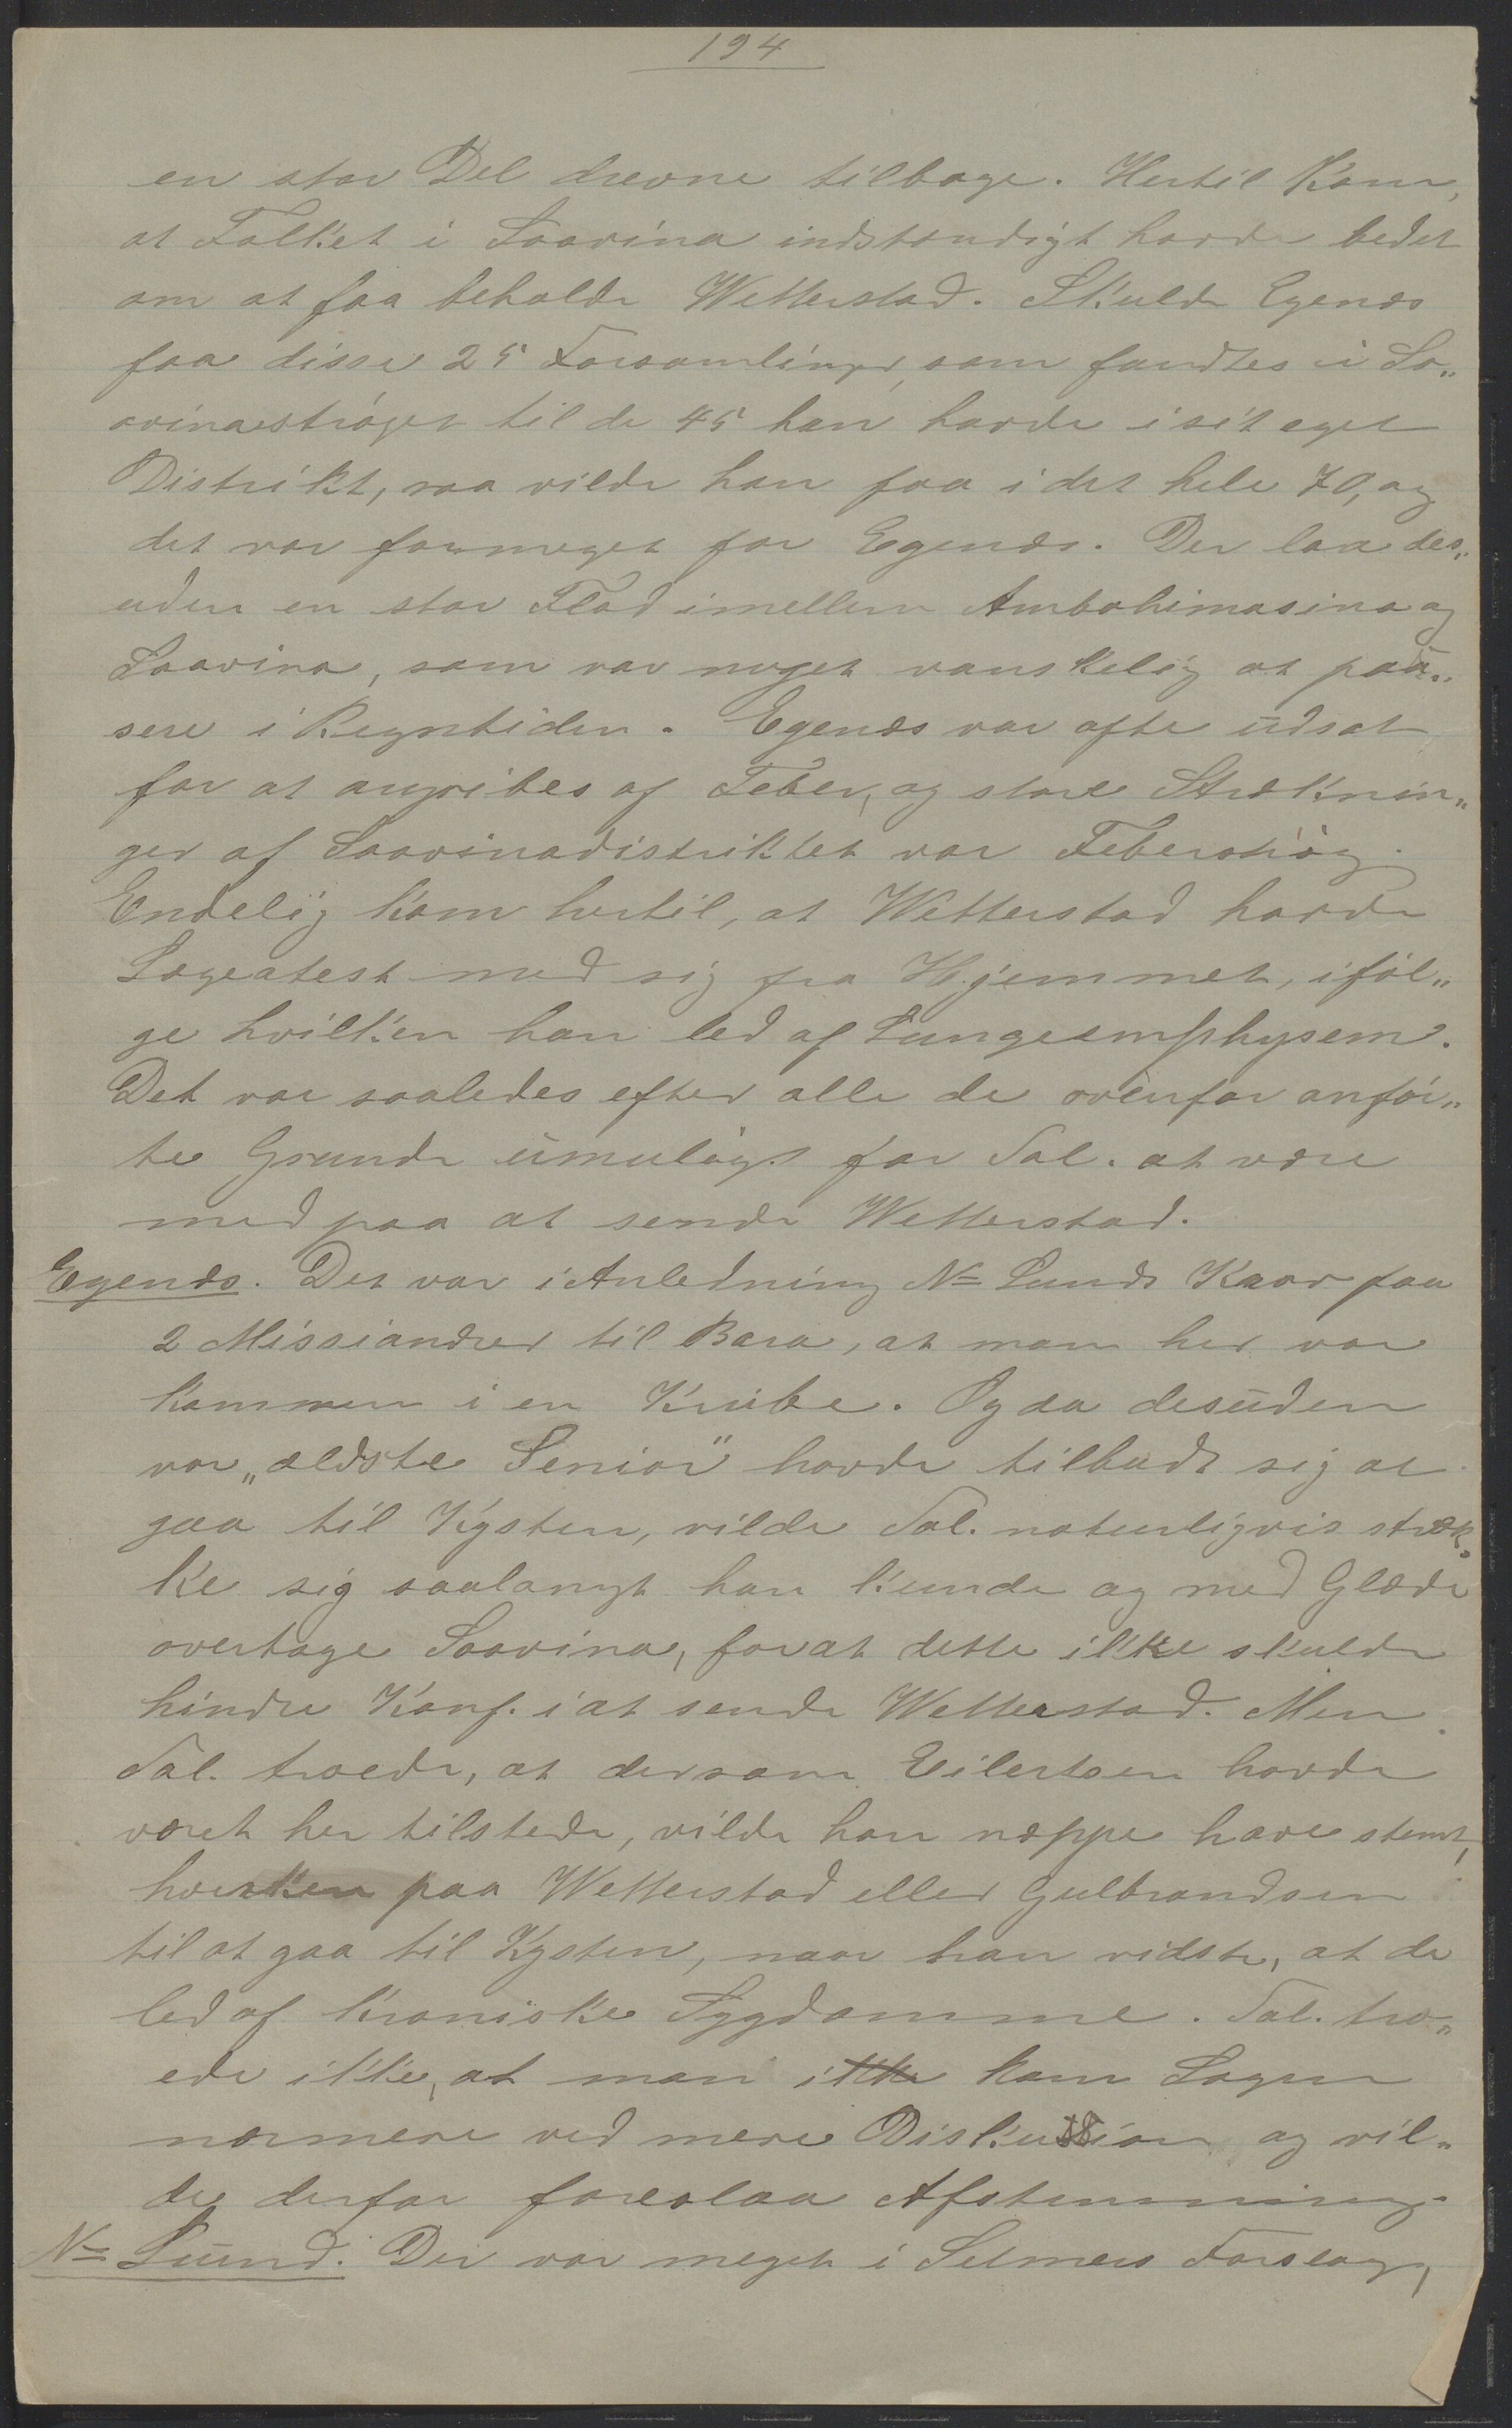 194
en stor Del drevne tilbage. Hertil kom,
at Folket i Soavina indstændigt havde bedet
om at faa beholde Wetterstad. Skulde Egenæs
faa disse 25 Forsamlinger, som fandtes i So„
avinastrøget til de 45 han havde i sit eget
Distrikt, saa vilde han faa i det hele 70, og
det var formeget for Egenæs. Der laa des„
uden en stor Flod imellem Ambohimasina og
Soavina, som var meget vanskelig at pas„
sere i Regntiden. Egenæs var ofte udsat
for at angribes af Feber, og store Stræknin„
ger af Soavinadistriktet var Feberstrøg.
Endelig kom hertil, at Wetterstad havde
Lægeatest med sig fra Hjemmet, iføl„
ge hvilken han led af Lungeemphysem.
Det var saaledes efter alle de ovenfor anfør„
te Grunde umuligt for Tal. at være
med paa at sende Wetterstad.
Egenæs. Det var i Anledning Ns Lunds Krav paa
2 Missionærer til Bara, at man her var
kommen i en Knibe. Og da desuden
vor „ældste Senior" havde tilbudt sig at
gaa til Kysten, vilde Tal. naturligvis stræk„
ke sig saalangt han kunde og med Glæde
overtage Soavina, forat dette ikke skulde
hindre Konf. i at sende Wetterstad. Men
Tal. troede, at dersom Eilertsen havde
været her tilstede, vilde han neppe have stemt,
hverken paa Wetterstad eller Gulbrandsen
til at gaa til Kysten, naar han vidste, at de
led af kroniske Sygdomme. Tal. tro„
ede ikke, at man ikke kom Sagen
nærmere ved mere Diskussion og vil„
de derfor foreslaa Afstemning.
Ns Lund. Der var meget i Selmers Forslag,